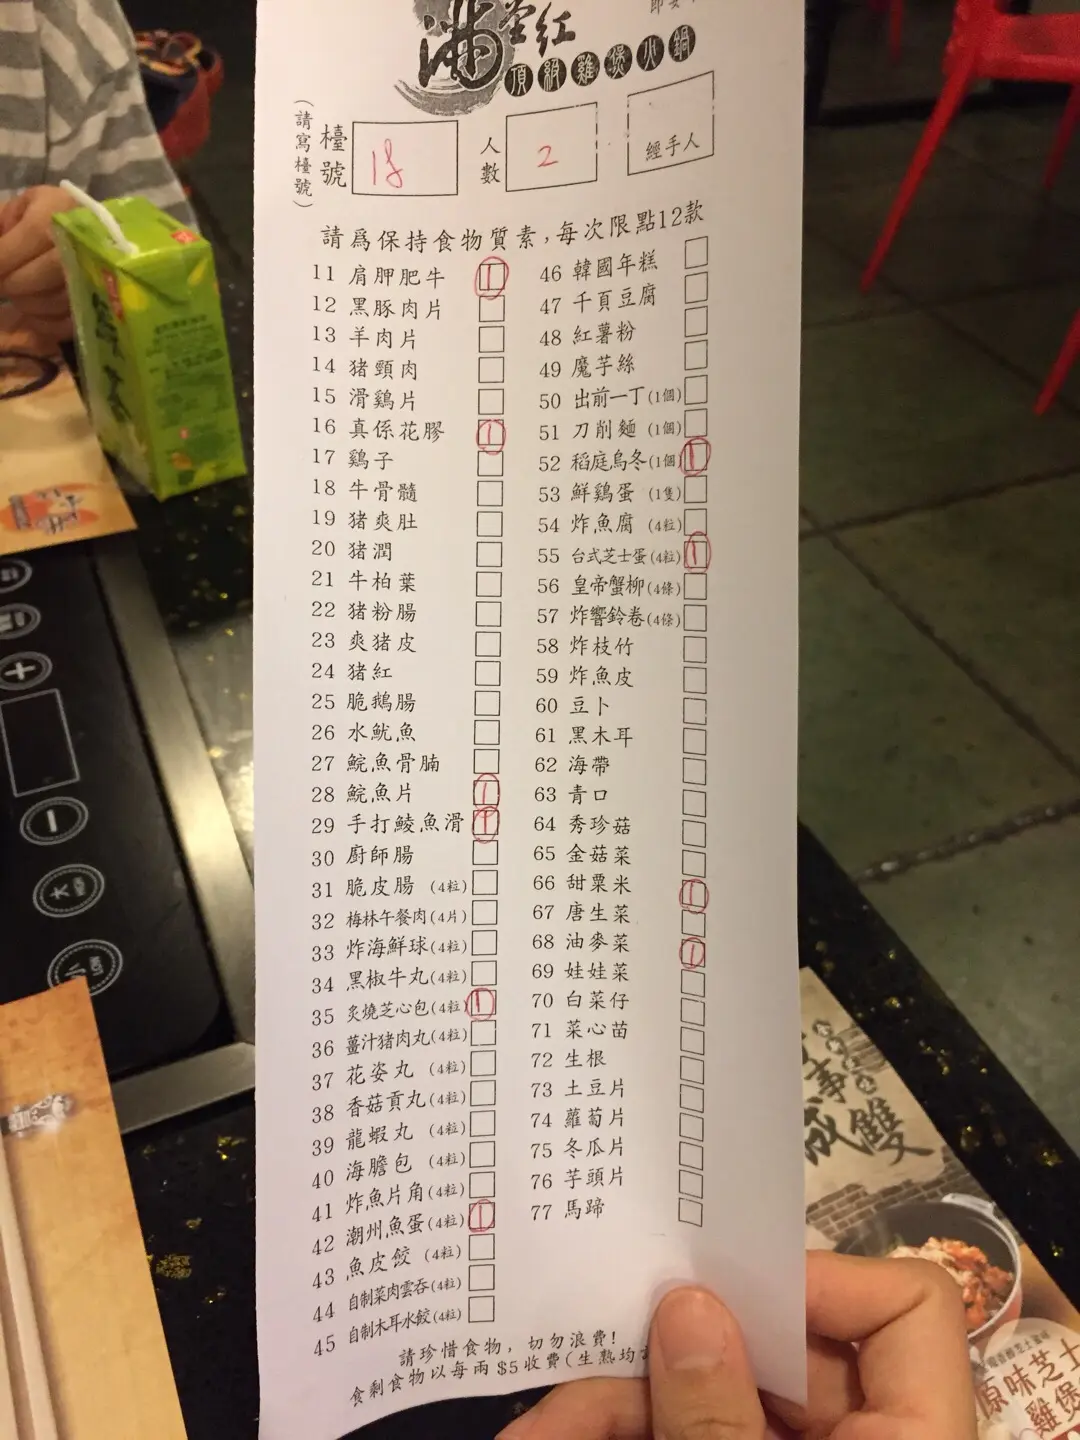 滿堂紅
頂級雞煲火鍋
(請寫檯號)
檯號 18
人數 2
經手人
請爲保持食物質素,每次限點12款
11 肩胛肥牛 1
12 黑豚肉片
13 羊肉片
14 猪頸肉
15 滑鷄片
16 真係花膠 1
17 鷄子
18 牛骨髓
19 猪爽肚
20 猪潤
21 牛柏葉
22 猪粉腸
23 爽猪皮
24 猪紅
25 脆鵝腸
26 水魷魚
27 鯇魚骨腩
28 鯇魚片 1
29 手打鯪魚滑 1
30 廚師腸
31 脆皮腸 (4粒)
32 梅林午餐肉(4片)
33 炸海鮮球(4粒)
34 黑椒牛丸(4粒)
35 炙燒芝心包(4粒) 1
36 薑汁猪肉丸(4粒)
37 花姿丸 (4粒)
38 香菇貢丸(4粒)
39 龍蝦丸 (4粒)
40 海膽包 (4粒)
41 炸魚片角(4粒)
42 潮州魚蛋(4粒) 1
43 魚皮餃 (4粒)
44 自制菜肉雲吞(4粒)
45 自制木耳水餃(4粒)
46 韓國年糕
47 千頁豆腐
48 紅薯粉
49 魔芋絲
50 出前一丁(1個)
51 刀削麵 (1個)
52 稻庭烏冬(1個) 1
53 鮮鷄蛋 (1隻)
54 炸魚腐 (4粒)
55 台式芝士蛋(4粒) 1
56 皇帝蟹柳(4條)
57 炸響鈴卷(4條)
58 炸枝竹
59 炸魚皮
60 豆卜
61 黑木耳
62 海帶
63 青口
64 秀珍菇
65 金菇菜
66 甜粟米 1
67 唐生菜
68 油麥菜 1
69 娃娃菜
70 白菜仔
71 菜心苗
72 生根
73 土豆片
74 蘿蔔片
75 冬瓜片
76 芋頭片
77 馬蹄
請珍惜食物,切勿浪費!
食剩食物以每兩$5收費(生熟均
事
成雙
原味芝士
雞煲